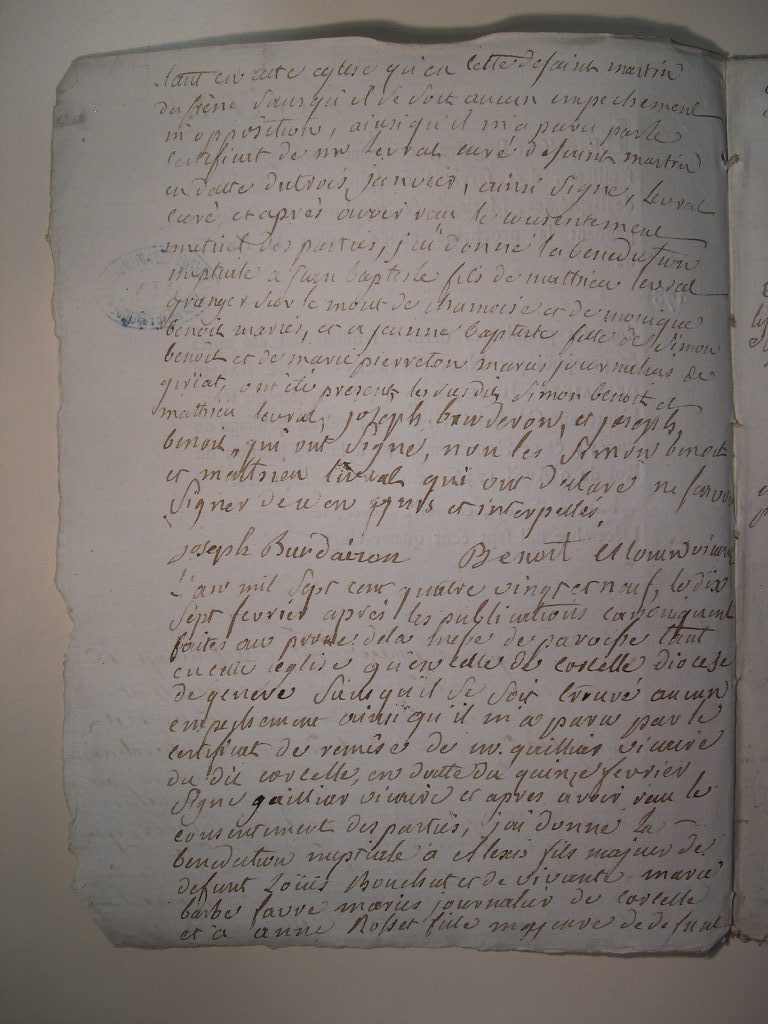 tant en cette eglise qu'en cette de saint martin
du frêne sans qu'il se soit aucun empechement
ni opposition, ainsi qu'il m'a paru par le
certificat de mr levrat curé de saint martin
en datte du trois janvier, ainsi signe, Levrat
curé et après avoir reçu le consentement
mutuel des parties, j'ai donné la benediction
nuptiale a jean baptiste fils de matthieu levrat
granger sur le mont de chamoise et de monique
benoit mariés, et a jeanne baptiste fille de Simon
benoit et de marie pierreton mariés journaliers de
ont été present les susdits Simon benoit et
mathieu levrat, joseph burderon, et joseph
benoit, qui ont signe, non les Simon benoit
et matthieu levrat qui ont déclaré ne savoir
signer de ce enquis et interpellés
joseph Burdairon Benoit vicaire
L'an mil sept cent quatre vingt et neuf, le dix
sept fevrier après les publications canoniquement
faites au prone de la messe de paroisse tant
en cette église qu'en celle de corcelle diocese
de geneve sans qu'il se soit trouvé aucun
empechement ainsi qu'il m'a paru par le
certificat de remise de m. quillier vicaire
du dit corcelle, en datte du quinze fevrier
signe quillier vicaire et apres avoir reçu le
consentement des parties, j'ai donne la
benediction nuptiale à Alexis fils majeur de
defunt Loüis Bouchut et de vivante marie
barbe favre mariés journalier de corcelle
et à anne Rosset fille majeure de defunt